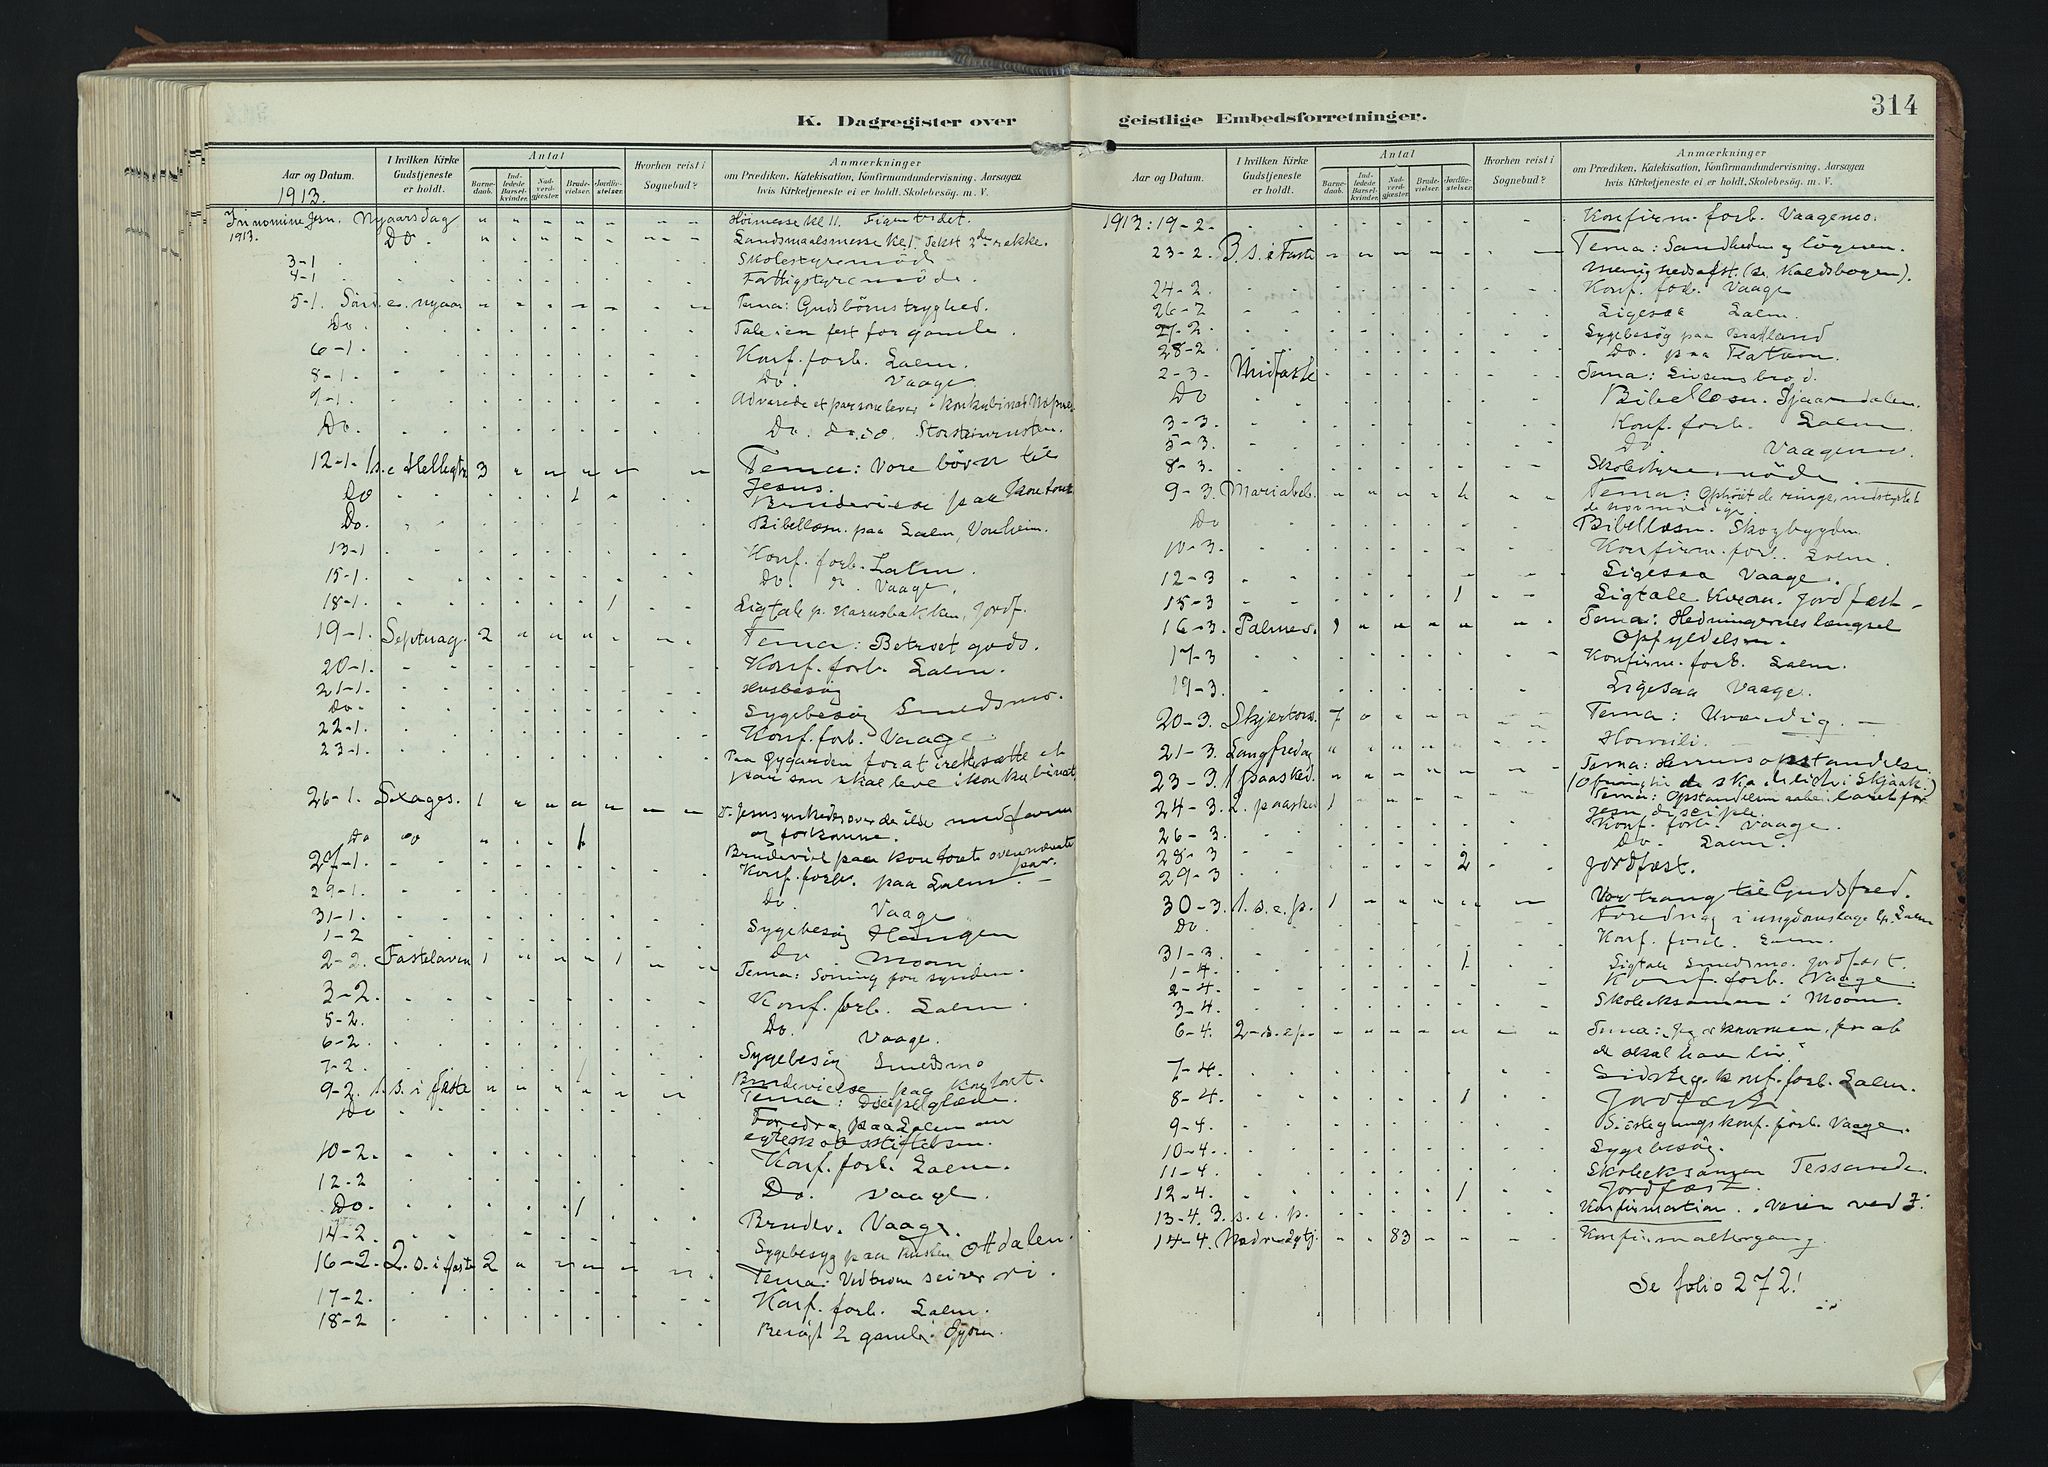 K. Dagregister over
Aar og Datum.
I hvilken Kirke Gudstjeneste er holdt.
Antal
Barnedaab.
Indledede Barselkvinder.
Nadverdgjester.
Brudevielser.
Jordfæstelser.
Hvorhen reist i Sognebud?
Anmærkninger
om Prædiken, Katekisation, Konfirmandundervisning, Aarsagen
hvis Kirketjeneste ei er holdt, Skolebesøg, m. V.
1913.
In nomine Jesu. Nyaarsdag " " " " " Høimesse kl 11.
1913. Do. " " " " " Landsmaalsmesse kl. Tekst 2den rekke.
3-1 Skolestyremöde
4-1 Fattigstyremöde.
5-1. Sönd. e. nyaar Tema: Gudsbörns tryghed.
Do. Tale i en fest for gamle.
6-1. Konf. forb. Lalm.
8-1. Do. Vaage
9-1. Advarede et par som lever i konkubinat
Do. Do. do. do.
12-1. 1 s. e. Helligtr 3 Tema: Vore börn til
Jesus.
Do 1 Brudevielse paa kontoret
Do. Bibellæsn. paa Lalm, Vonheim.
13-1 Konf. forb. Lalm.
15-1. Do. Vaage.
18-1. 1 Ligtale p. Jordf.
19-1. Septuag. 2 Tema: Betroet gods.
20-1. Konf. forb. Lalm.
21-1. Husbesög
Do. Sygebesög Smedsmo.
22-1. Konf. forb. Vaage
23-1. Paa for at irettesætte et
par som skal leve i konkubinat
26-1. Sexages. 1 T. Jesus ynkedes over de
og forkomne.
Do do 1 Brudeviel paa kontoret ovennevnte
par.
27-1. Konf. forb. paa Lalm.
29-1. Do. Vaage
31-1. Sygebesög Haugen
1-2 Do Moen
2-2. Fastelaven 1 1 Tema: Soning for synden.
3-2. Konf. forb. Lalm.
5-2. Do. Vaage.
6-2. Sygebesög Smedsmo
7-2 1 Brudevielse paa kontoret.
9-2. 1. s. i faste Tema: Discipelglæde.
Do Foredrag paa Lalm om
egteskabsstiftelsen.
10-2. Konf. forb. Lalm.
12-2 Do. Vaage.
Do. 1 Brudev. Vaage.
14-2. Sygebesög paa Ottdalen.
16-2. 2. s. i faste 2 Tema: Ved troen seirer vi.
17-2. Konf. forb. Lalm.
18-2 Besögt 2 gamle i
geistlige Embedsforretninger.
314
Aar og Datum.
I hvilken Kirke Gudstjeneste er holdt.
Antal
Barnedaab.
Indledede Barselkvinder.
Nadverdgjester.
Brudevielser.
Jordfæstelser.
Hvorhen reist i Sognebud?
Anmærkninger
om Prædiken, Katekisation, Konfirmandundervisning, Aarsagen
hvis Kirketjeneste ei er holdt, Skolebesøg, m. V.
1913: 19-2. Konfirm. forb. Vaagemo.
23-2. 3. s. i Faste Tema: Sandheden og lögnen.
Menighedsafst. (se Kaldsbogen).
24-2. Konf. forb. Vaage
26-2 Ligesaa Lalm.
27-2. Sygebesög paa
28-2. Do. paa
2-3. Midfaste Tema: Livsens bröd.
Do Bibellæsn. Sjaardalen.
3-3. Konf. forb. Lalm.
5-3. Do Vaagemo.
8-3. Skolestyremöde.
9-3. Mariabeb. 1 Tema: Ophöiet de ringe, nedstyrtet
Do Bibellæsn. Skogbygden
10-3. Konfirm. forb. Lalm.
12-3 Ligesaa Vaage.
15-3 1 Ligtale Jordfæst
16-3. Palmes. 1 Tema: Hedningernes længsel
Opfyldelsen.
17-3 Konfirm. forb. Lalm.
19-3. Ligesaa Vaage.
20-3. Skjærtors. 7 Tema: Uværdig.
21-3. Langfredag Homili.
23-3. 1 paasked. Tema: Herrens opstandelse.
24-3. 2. paaske 1 Tema:
26-3. Konf. forb. Vaage.
28-3 Do. Lalm.
29-3 2 Jordfæst.
30-3. 1. s. e. p. 1 Vor trang til Gudsfred.
Do. Foredrag i ungdomslaget Lalm
31-3. Konf. forb. Lalm.
1-4. 1 Ligtale Smedsmo. Jordfæst.
2-4. Konf. forb. Vaage.
3-4 Skoleeksamen i Moen.
6-4. 2-s. e. p. Tema: Jeg er kommen, for at
de skal have liv.
7-4. Sidste g. konf. forb. Lalm.
8-4. 1 Jordfæst
9-4. Siste gangs konf. forb. Vaage.
10-4. Sygebesög.
11-4. Skoleeksamen Tessanden.
12-4. 1 Jordfæst.
13-4. 3. s. e. p. Konfirmation.
14-4. Nadverdgtj. 83 Konfirm altergang.
Se folio 272!